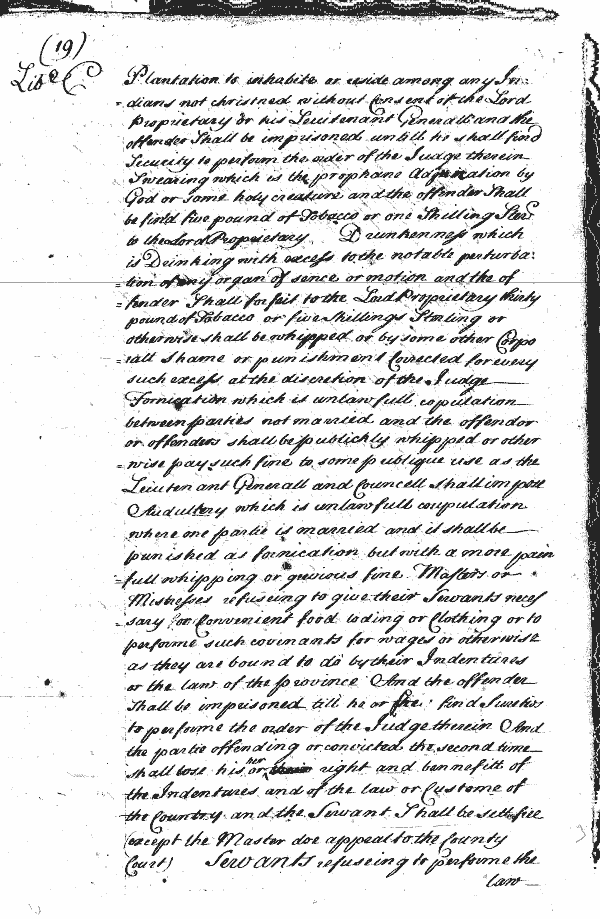 (19)
Liber C
Plantation to inhabite or reside among any In-
=dians not christned without Consent of the Lord
Proprietary or his Leuitenant Generall and the
offender Shall be imprisoned untill he shall find
Security to perform the order of the Judge therein
Swearing which is the prophane Adjuration by
God or Some holy creature and the offender Shall
be find five pound of Tobacco or one Shilling Ster
to the Lord Proprietary Drunkenness which
is Drinking with excess to the notable perturba:
=tion of any organ of sence or motion and the of
=fender Shall forfeit to the Lord Proprietary thirty
pound of Tobacco or five Shillings Sterling or
otherwise shall be whipped or by some other Corpo
=rall Shame or punishment Corected for every
such excess at the discretion of the Judge
Fornication which is unlawfull copulation
between parties not married and the offendor
or offenders shall be publickly whipped or other
=wise pay such fine to some publique use as the
Leiutenant Generall and Councell Shall impose
Audultery which is unlawfull coupulation
where one partie is married and it shall be
punished as fornication but with a more pain
=full whipping or greivous fine Masters or
Mistresses refuseing to give their Servants neces
=sary or Convenient food loding or Clothing or to
performe such covinants for wages or otherwise
as they are bound to do by their Indentures
or the law of the province And the offender
Shall be imprisoned till he or she find Sureties
to performe the order of the Judge therein And
the partie offending or convicted the second time
shall lose his or her right and bennefitt of
the Indentures and of the law or Custome of
the Country and the Servant Shall be sett free
(except the Master doe appeal to the County
Court) Servants refuseing to performe the
law